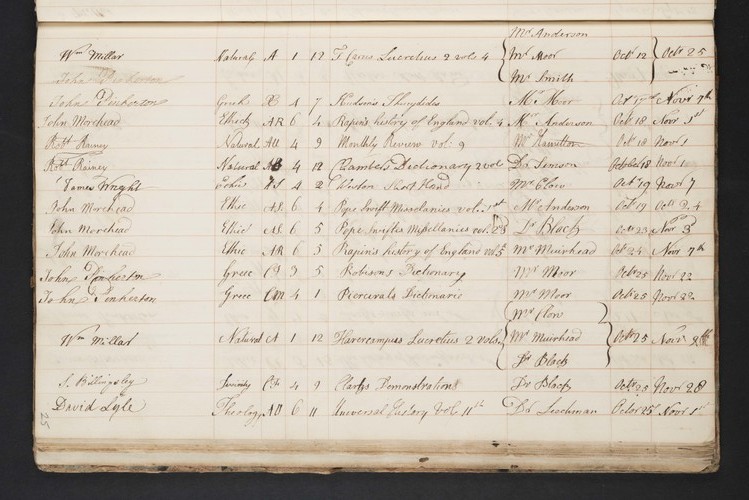 Mr Anderson
Wm Millar Natural A 1 12 T. Carus Lucretius 2 vols 4 Mr Moor Octr 12 Octr 25
Mr Smith
John Pinkerton
John Pinkerton Greek 4 7 Hudson's Thucydides Mr Moor Oct 17th Novr 7th
John Morehead Ethick AR 6 4 Rapin's history of England vol. 4 Mr Anderson Octr 18 Novr 1st
Robtt Rainey Natural All 4 9 Monthly Review vol. 9 Mr Hamilton Octr 18 Novr 1
Robtt Rainey Natural 4 12 Chambers Dictionary 2 vol Dr Simson October 18 Novr 10
James Wright 4 2 Weston Short Hand Mr Clow Octr 19 Novr 7
John Morehead Ethic AL 6 4 Pope Swift Miscelanies vol. 1st Mr Anderson Octr 19 Octr 24
John Morehead Ethic AL 6 5 Pope Swifts Miscellanies vol. 2d 3 Dr Black Octr 23 Novr 3
John Morehead Ethic AR 6 3 Rapin's history of England vol 5 Mr Muirhead Octr 24 Novr 7th
John Pinkerton Greec 3 5 Robisons Dictionary Mr Moor Octr 25 Novr 22
John Pinkerton Greec CM 4 1 Dictionaric Mr Moor Octr 25 Novr 22
Mr Clow
Wm Millar Natural A 1 12 Havercampus Lucretius 2 vols Mr Muirhead Octr 25 Novr 9th
Dr Black
S. Billingsley 4 9 Clarks Demonstration Dr Black Octr 25 Novr 28
David Lyle Theology 6 11 Universal history Vol. 11th Dr Leechman Octor 25 Novr 1st
25